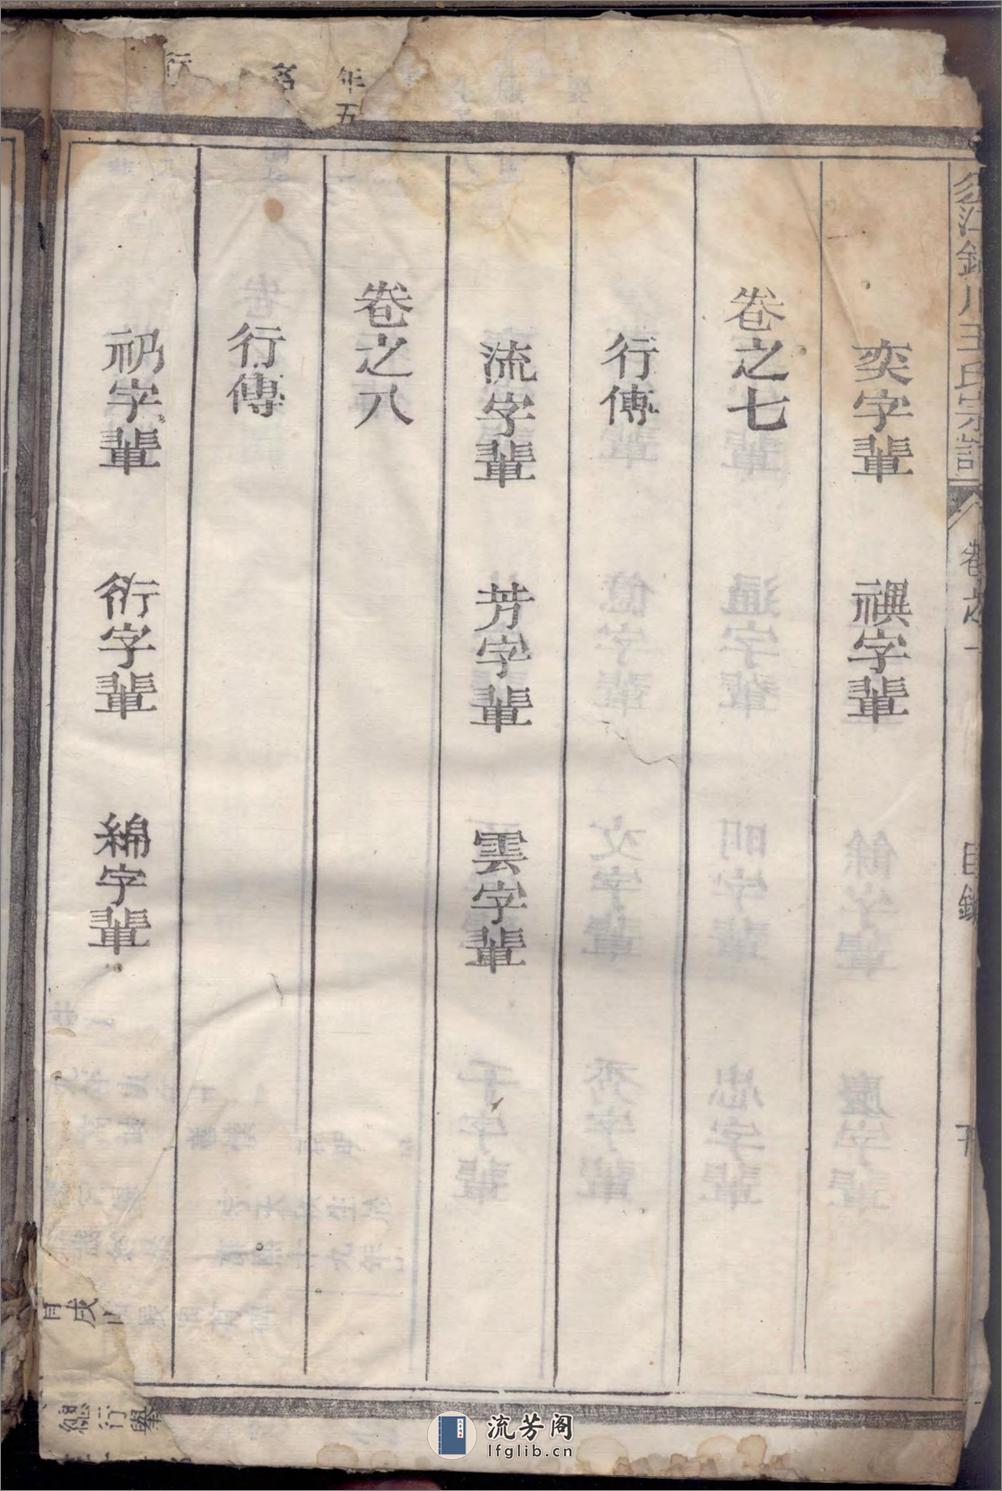 江 川王氏宗譜 卷之 目錄
奕字輩 禩字輩
卷之七
行傳
流字輩 芳字輩 雲字輩
卷之八
行傳
礽字輩 衍字輩 綿字輩
年五
行
戌
總行舉
流芳阁
lfglib.cn